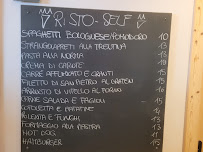 RISTO-SELF
SPAGHETTI BOLOGNESE/POMODORO 10
STRANGOLAPRETI ALLA TRENTINA 13
PASTA ALLA NORMA 13
CREMA DI CAROTE 10
CARRÈ AFFUMICATO E CRAUTI 15
FILETTO DI SAN PIETRO AL GRATEN 15
ARROSTO DI VITELLO AL FORNO 16
CARNE SALADA E FAGIOLI 15
COTOLETTA E PATATINE 15
POLENTA E FUNGHI 13
FORMAGGIO ALLA PIASTRA 13
HOT DOG 11
HAMBURGER 15